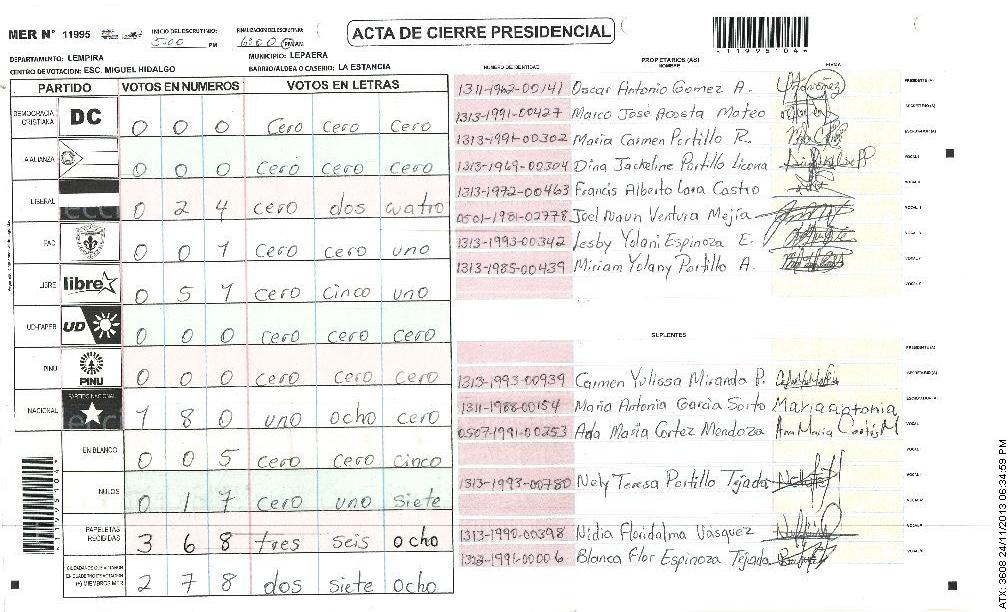 MER N° 11995
INICIO DEL ESCRUTINIO: 5:00 PM
FINALIZACION DEL ESCRUTINIO: 6:00 PM AM
ACTA DE CIERRE PRESIDENCIAL
11995104
DEPARTAMENTO: LEMPIRA
MUNICIPIO: LEPAERA
CENTRO DE VOTACION: ESC. MIGUEL HIDALGO
BARRIO/ALDEA O CASERIO: LA ESTANCIA
PARTIDO VOTOS EN NUMEROS VOTOS EN LETRAS
DEMOCRACIA CRISTIANA DC 0 0 0 Cero cero cero
ALIANZA 0 0 0 cero cero cero
LIBERAL 0 2 4 cero dos cuatro
PAC 0 0 1 cero cero uno
LIBRE libre 0 5 1 cero cinco uno
UD-FAPER UD 0 0 0 cero cero cero
PINU PINU 0 0 0 cero cero cero
NACIONAL PARTIDO NACIONAL 1 8 0 uno ocho cero
EN BLANCO 0 0 5 cero cero cinco
NULOS 0 1 7 cero uno siete
PAPELETAS RECIBIDAS 3 6 8 tres seis ocho
2 7 8 dos siete ocho
PROPIETARIOS (AS)
NUMERO DE IDENTIDAD NOMBRE FIRMA
1311-1962-00141 Oscar Antonio Gomez A. PRESIDENTE (A)
1313-1991-00427 Marco José Acosta Mateo SECRETARIO (A)
1313-1991-00302 Maria Carmen Portillo R. ESCRUTADOR (A)
1313-1969-00304 Dina Jackeline Portillo Licona VOCAL I
1313-1972-00463 Francis Alberto Lara Castro
0501-1981-02778 Joel Naun Ventura Mejía
1313-1993-00342 Lesby Yolani Espinoza E.
1313-1985-00439 Miriam Yolany Portillo A.
SUPLENTES
PRESIDENTE (A)
1313-1993-00939 Carmen Yulissa Miranda P. SECRETARIO (A)
1311-1988-00154 Maria Antonia Garcia Sorto Maria antonia ESCRUTADOR (A)
0507-1991-00253 Ada Maria Cortez Mendoza Ana Maria Cortés M
1313-1993-00780 Nely Teresa Portillo Tejada
1313-1990-00398 Nidia Floridalma Vasquez
1302-1991-00006 Blanca Flor Espinoza Tejada
11995104
ATX: 3608 24/11/2013 06:34:59 PM